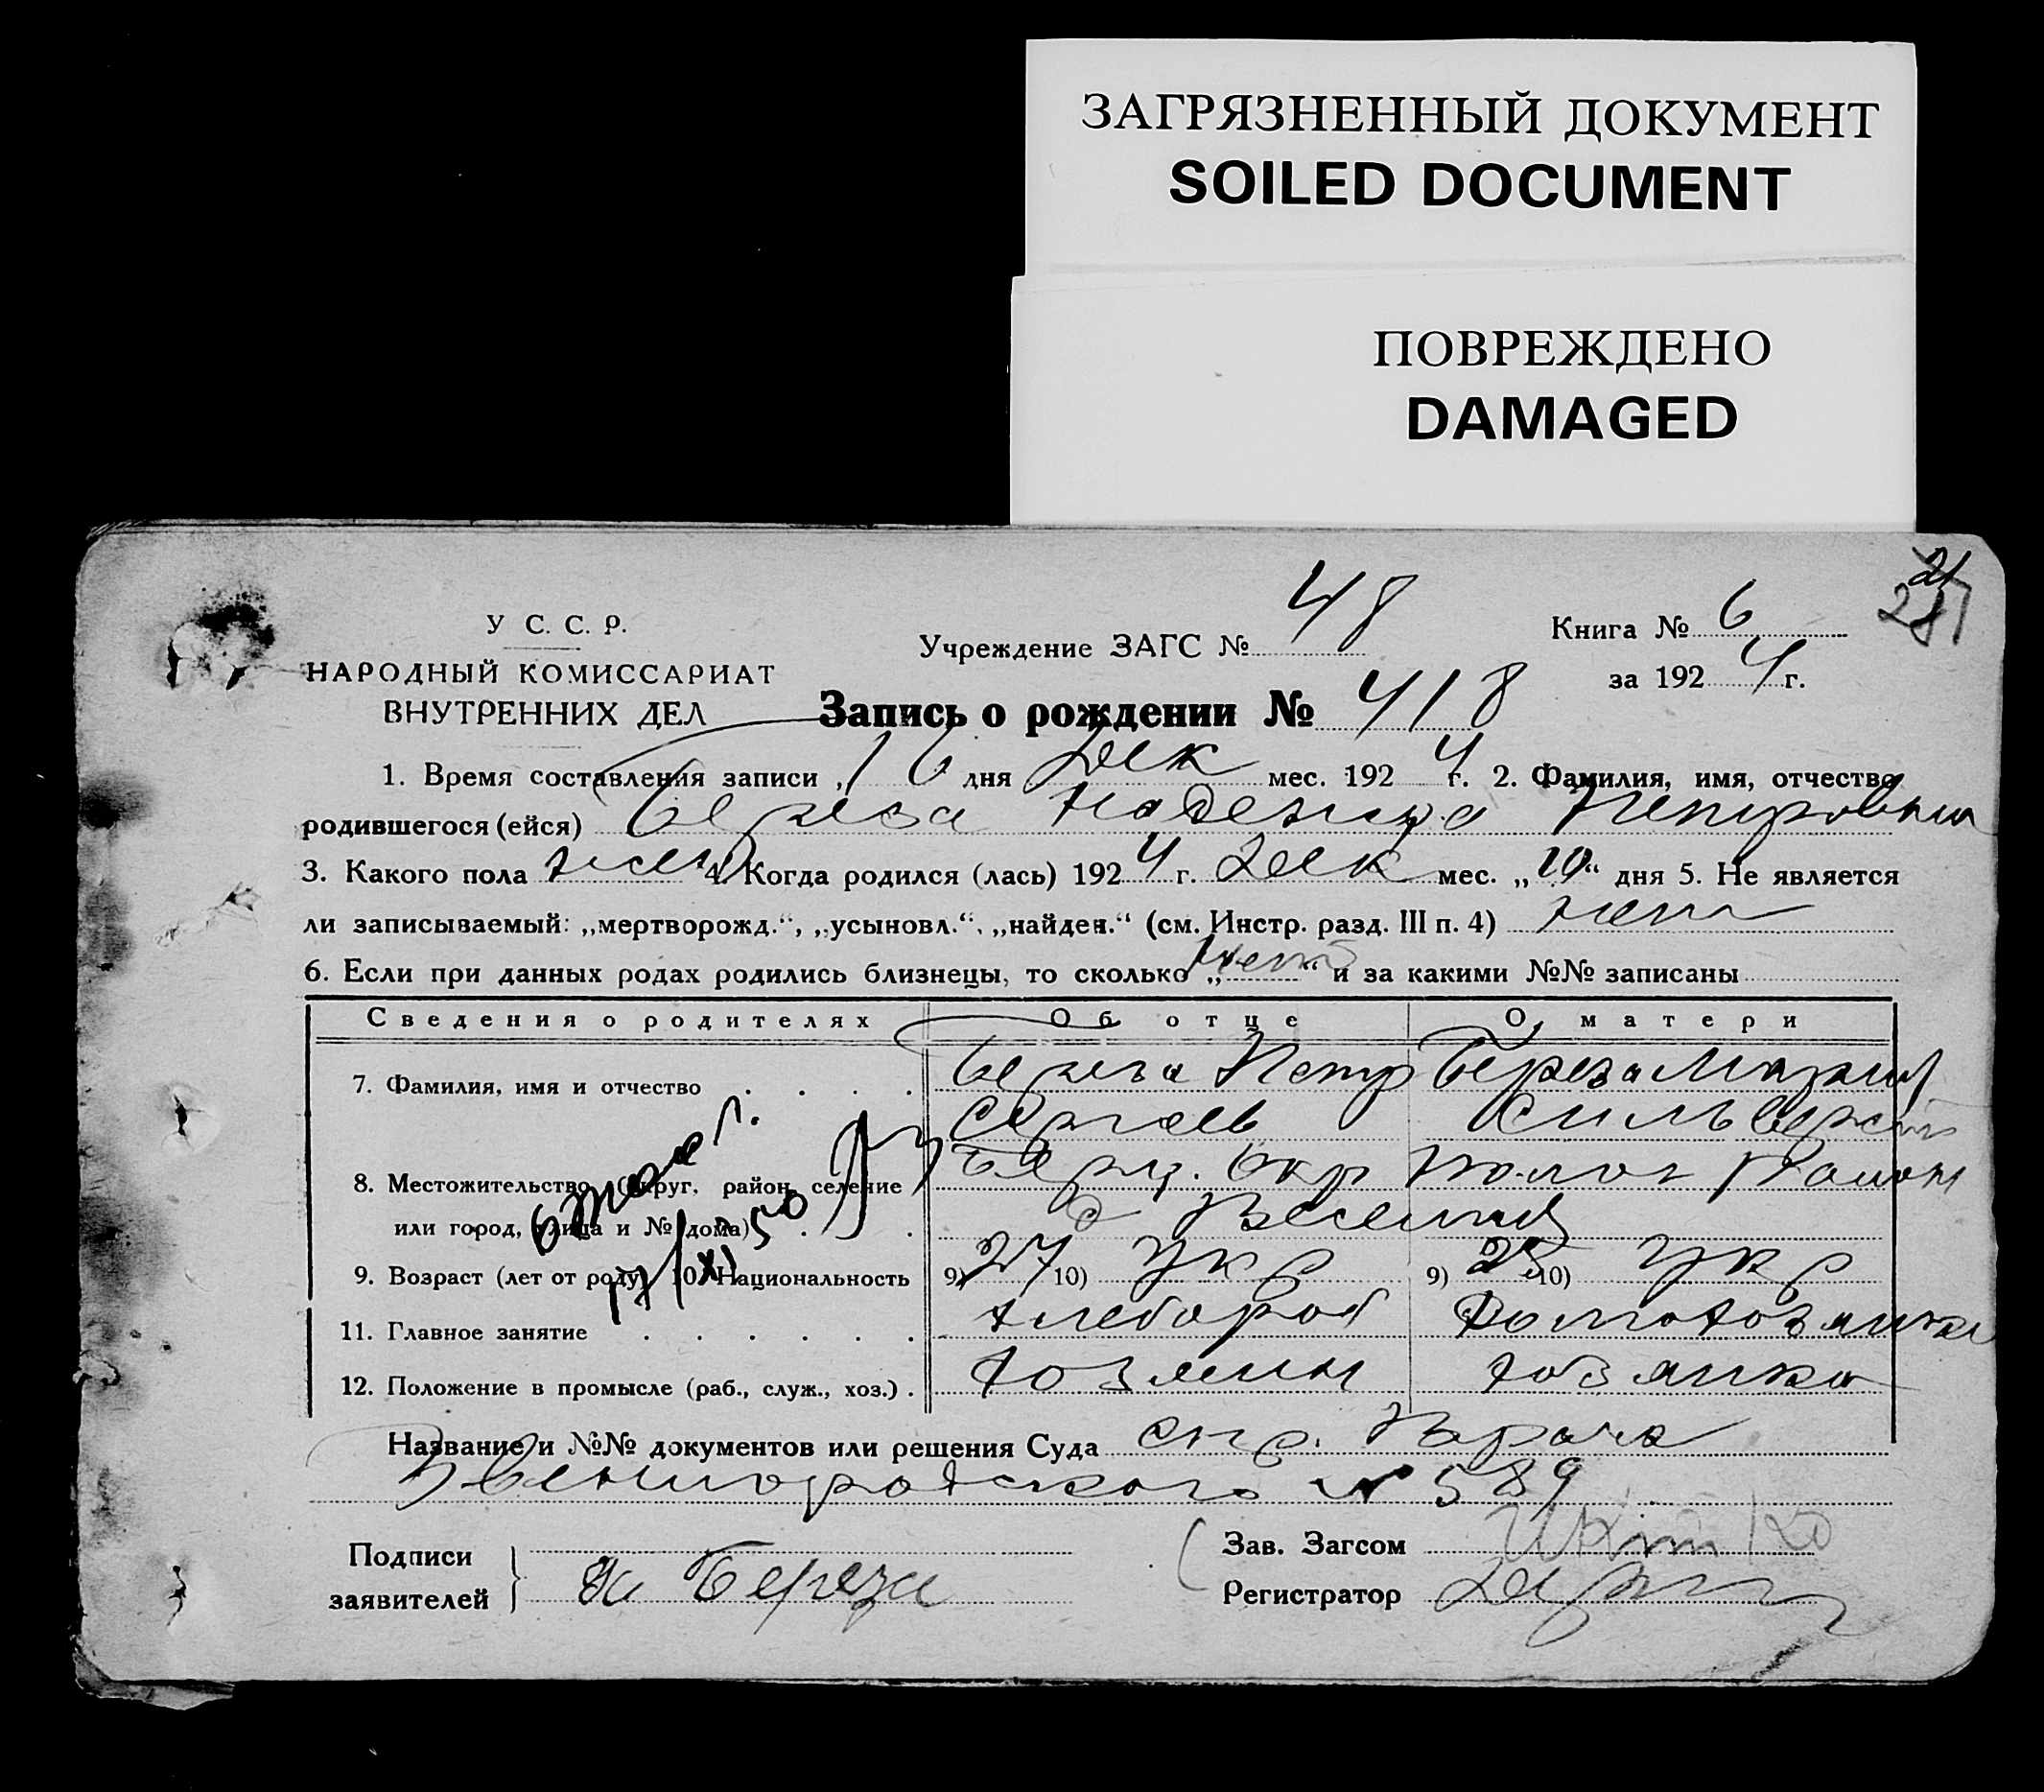 ЗАГРЯЗНЕННЫЙ ДОКУМЕНТ
SOILED DOCUMENT
ПОВРЕЖДЕНО
DAMAGED
У С. С. Р.
НАРОДНЫЙ КОМИССАРИАТ
ВНУТРЕННИХ ДЕЛ
Учреждение ЗАГС № 48
Книга № 6
за 1924 г.
Запись о рождении № 418
1. Время составления записи „16 дня Дек мес. 1924 г. 2. Фамилия, имя, отчество
родившегося (ейся) Береза Надежда Петровна
3. Какого пола жен 4. Когда родился (лась) 1924 г. Дек мес. „10“ дня 5. Не является
ли записываемый: „мертворожд.“, „усыновл.“, „найден.“ (см. Инстр. разд. III п. 4) нет
6. Если при данных родах родились близнецы, то сколько „нет“ и за какими №№ записаны
Сведения о родителях Об отце О матери
7. Фамилия, имя и отчество Береза Петр Береза Мария
Сергеев
8. Местожительство (округ, район, селение
или город, улица и № дома)
9. Возраст (лет от роду) 10. Национальность 9) 27 10) Укр 9) 25 10) Укр
11. Главное занятие хлебороб Домохозяйка
12. Положение в промысле (раб., служ., хоз.) хозяин хозяйка
Название и №№ документов или решения Суда спр. Врача
Звенигородского № 589
Подписи
заявителей
За Береза
Зав. Загсом
Регистратор